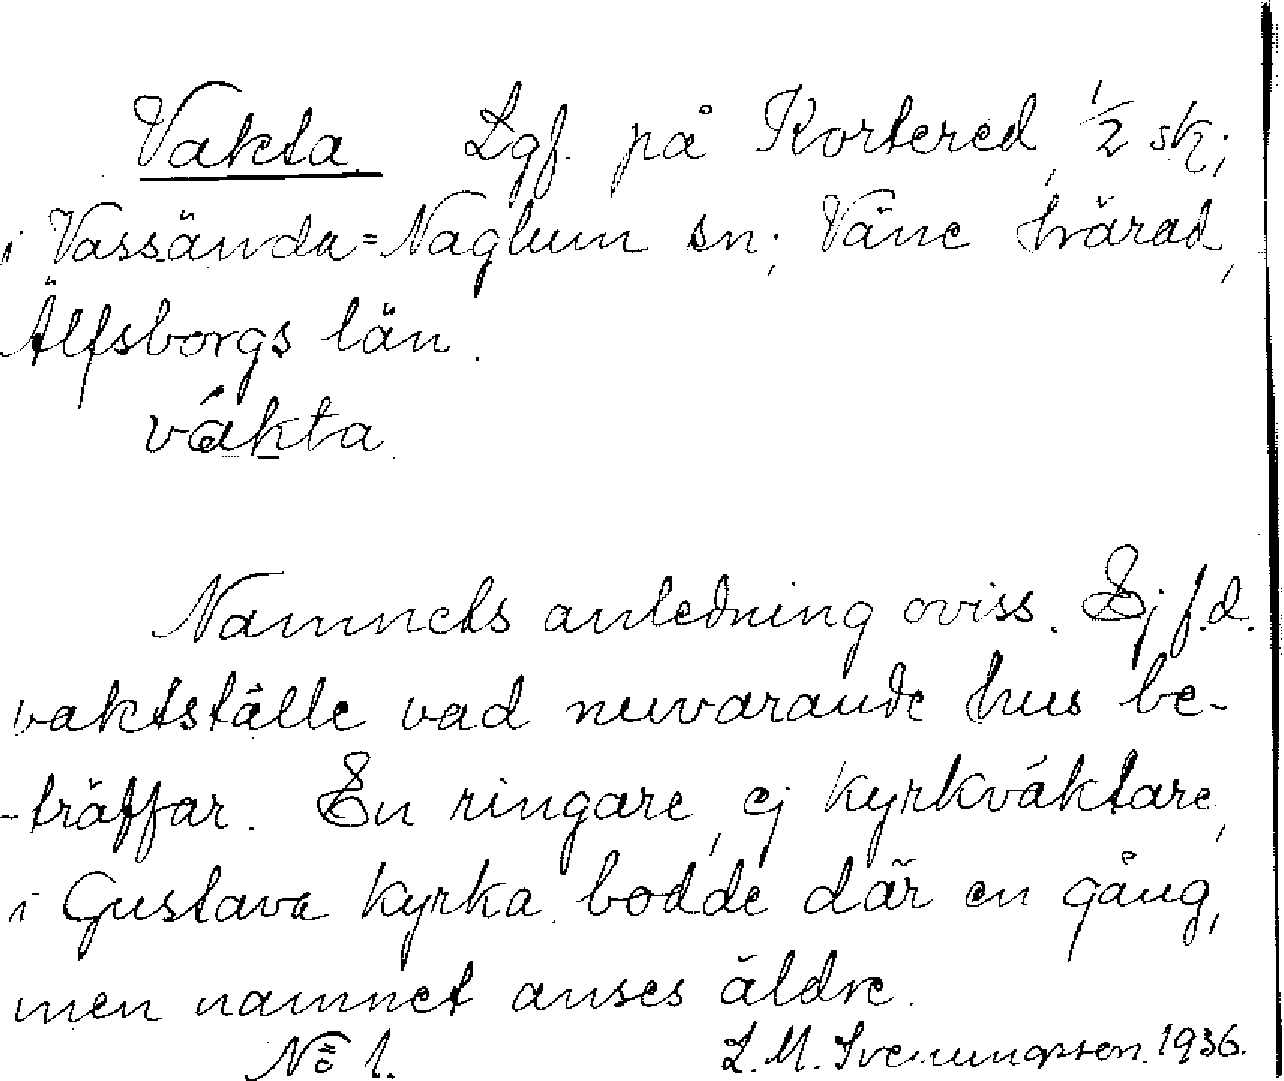 Vakta Lgf. på Kortered, 1/2 sk;
i Vassända=Naglum sn; Väne härad,
Älfsborgs län.
vákta.
Namnets anledning oviss. Ej f.d.
vaktställe vad nuvarande hus be-
-träffar. En ringare, ej kyrkväktare,
i Gustava kyrka bodde där en gång,
men namnet anses äldre.
No 1. L. M. Svenungsson. 1936.